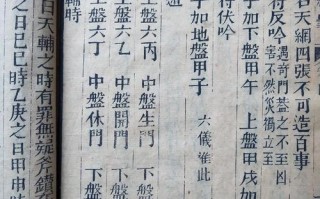 名天網四張不可造百事
得反吟 遇奇門蓋之不至凶 害不然災禍立至
子加下盤甲午 上盤甲戌加
得伏吟
子加地盤甲子 六儀准此
上盤六丙 中盤生門 下盤
上盤六乙 中盤開門 下盤
上盤六丁 中盤休門 下盤
輔時
曰天輔之時有罪無疑斧鑕在
之日己巳時乙庚之日甲申時